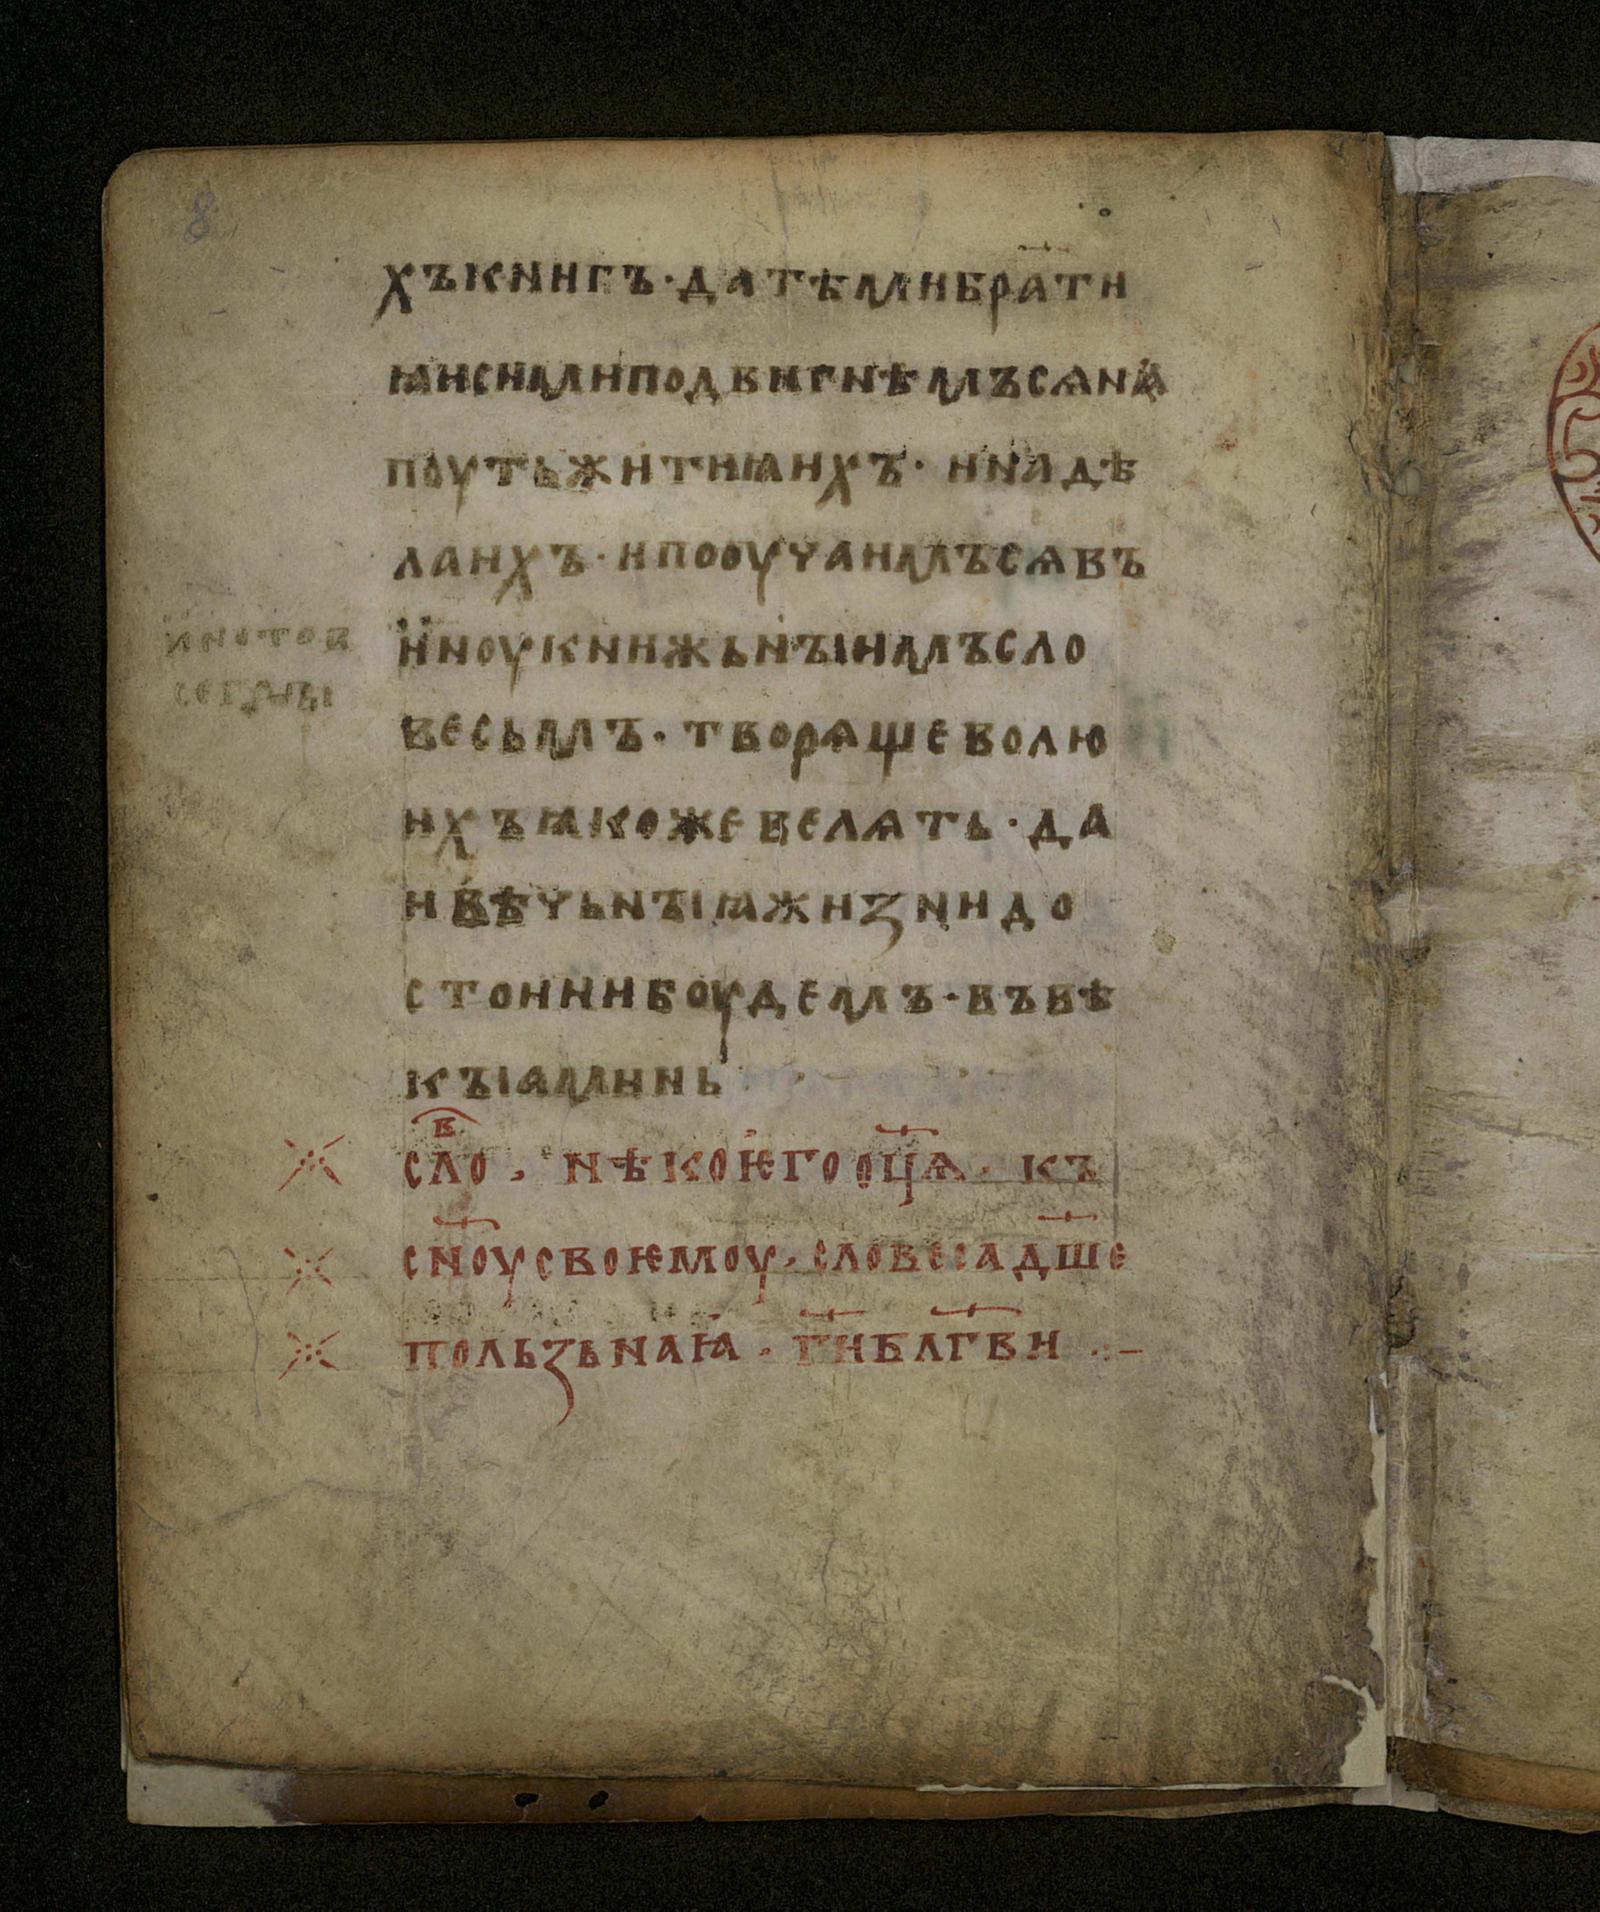 8
хъкнигъ· да тѣми брати
ꙗ и сими подвигнѣмъ сѧ на
поуть житиꙗ ихъ· и на дѣ
ла ихъ· и пооучаимъ сѧ въ
ı҆ноу книжьнꙑимъ сло
весьмъ· творѧще волю
ихъ ꙗкоже велѧть· да
и вѣчьнꙑꙗ жизни до
стоини боудемъ· въ вѣ
кꙑ аминь
слоⷡ҇· нѣкоѥго оц҃ѧ· къ
сн҃оу своѥмоу· словеса дш҃е
пользьнаꙗ· г҃и блг҃ви